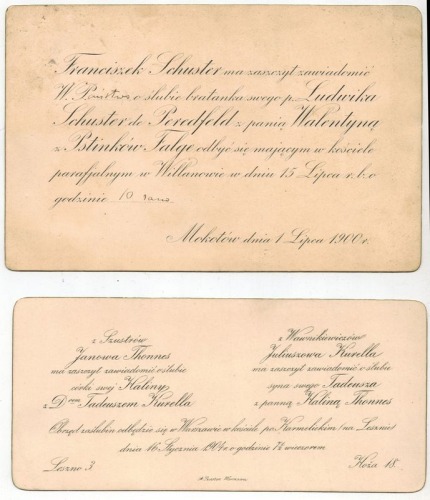 Franciszek Schuster ma zaszczyt zawiadomić
W. Państwa o ślubie bratanka swego p. Ludwika
Schuster de Peredfeld z panią Walentyną
z Pstinków Talge odbyć się mającym w kościele
paraffjalnym w Willanowie w dniu 15 Lipca r. b. o
godzinie 10 rano
Mokotów dnia 1 Lipca 1900 r.
z Szustrów
Janowa Thonnes
ma zaszczyt zawiadomić o ślubie
córki swej Haliny
z Drem Tadeuszem Kurella
z Wawnikiewiczów
Juljuszowa Kurella
ma zaszczyt zawiadomić o ślubie
syna swego Tadeusza
z panną Haliną Thonnes
Obrzęd zaślubin odbędzie się w Warszawie w kościele po-Karmelickim (na Lesznie)
dnia 16 Stycznia 1904 r. o godzinie 7½ wieczorem
Leszno 3.
Hoża 18.